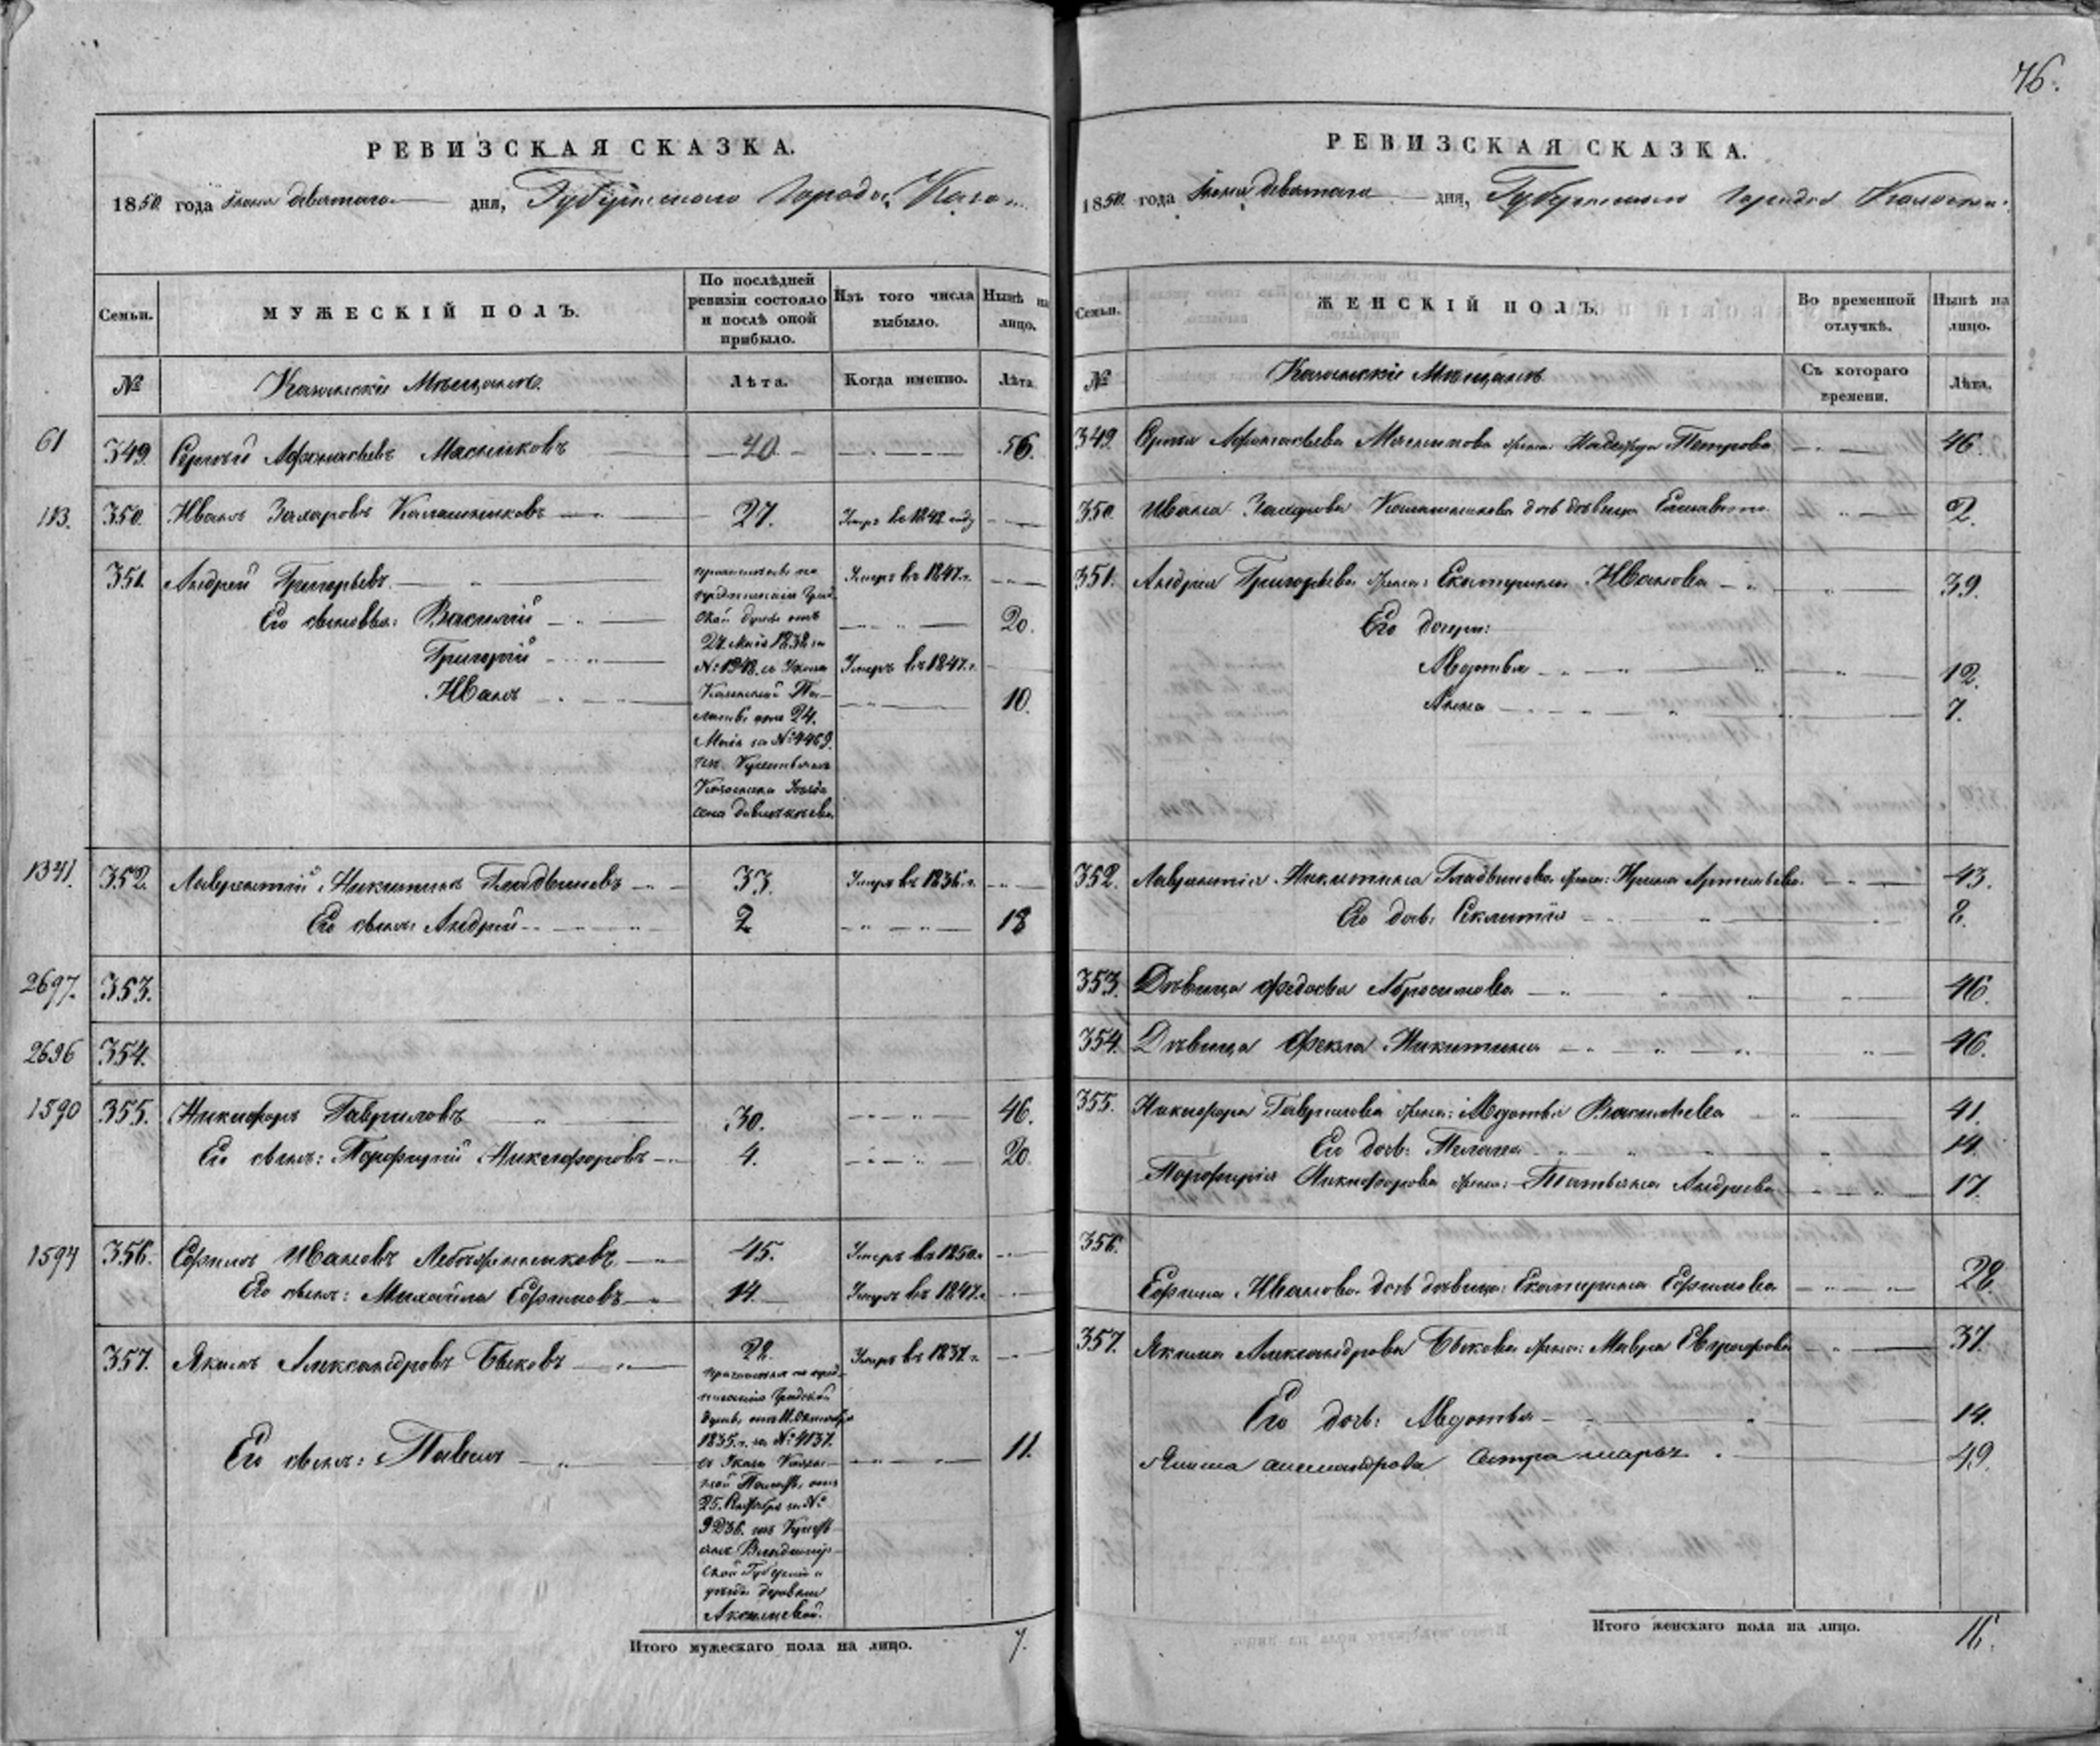 76.
РЕВИЗСКАЯ СКАЗКА.
1850 года Іюня девятаго дня, Губернскаго Города Каза
Семьи.
МУЖЕСКІЙ ПОЛЪ.
По послѣдней ревизіи состояло и послѣ оной прибыло.
Изъ того числа выбыло.
Нынѣ на лицо.
№
Казанскіе Мѣщане.
Лѣта.
Когда именно.
Лѣта
61 349. Сергѣй Афонасьевъ Масленковъ 40. 56.
113. 350. Иванъ Захаровъ Калашниковъ 27. Умеръ въ 1848 году
351. Андрей Григорьевъ Умеръ въ 1847 г.
Его сыновья: Василій 20.
Григорій Умеръ въ 1847 г.
Иванъ 10.
24. Маія 1838 за
Казенской Па-
латы отъ 24.
Маія за № 4469.
1341. 352. Лаврентій Никитинъ Умеръ въ 1836 г. 33.
Его сынъ Андрей 2 18
2697. 353.
2696 354.
1590 355. Никифоръ Гавриловъ 30. 46.
Его сынъ: Порфирій Никифоровъ 4. 20.
1594 356. Ефимъ Ивановъ 45. Умеръ въ 1850 г.
Его сынъ: Михайла Ефимовъ 14. Умеръ въ 1847 г.
357. Якимъ Александровъ Быковъ 22. Умеръ въ 1837 г.
Думы, отъ 11. Октября
1835. г. за № 4137.
Его сынъ: Павелъ 11.
25. Сентября за №
9236. изъ
Владимір-
ской Губерніи и
уѣзда деревни
Итого мужескаго пола на лицо. 7.
РЕВИЗСКАЯ СКАЗКА.
1850. года Іюня девятаго дня, Губернскаго Города Казани.
Семьи.
ЖЕНСКІЙ ПОЛЪ.
Во временной отлучкѣ.
Нынѣ на лицо.
№
Казанскіе Мѣщане
Съ котораго времени.
Лѣта.
349. Сергѣя Афонасьева Масленкова жена: Надежда Петрова 46.
350. Ивана Захарова Калашникова дочь дѣвица Елисавета 2.
351. Андрея Григорьева жена: Екатерина Иванова 39.
Его дочери:
Авдотья 12.
Анна 7.
352. Лаврентія Никитина жена: Ирина Артемьева 43.
Его дочь: 8.
353. Дѣвица Федосья Абросимова 46.
354. Дѣвица Фекла Никитина 46.
355. Никифора Гаврилова жена: Авдотья Васильева 41.
Его дочь: Пелагея 14.
Порфирія Никифорова жена: Татьяна Андреева 17.
356.
Ефима Иванова дочь дѣвица: Екатерина Ефимова 28.
357. Якима Александрова Быкова жена: Мавра Евграфова 37.
Его дочь: Авдотья 14.
Якима Александрова Сестра Марья 49.
Итого женскаго пола на лицо. 16.